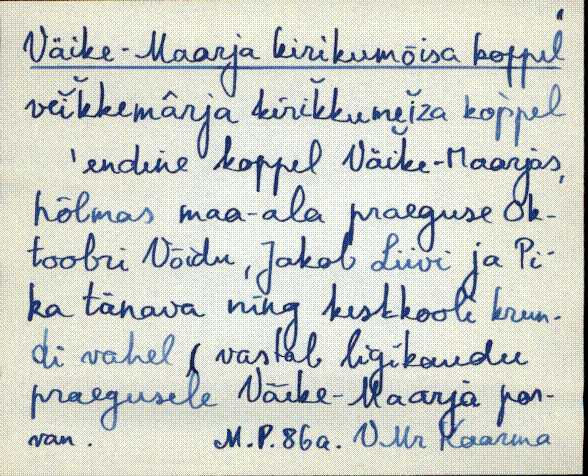 Väike-Maarja kirikumõisa koppel
veĭkkemârja kirĭkkumeĭza koppel
'endine koppel Väike-Maarjas,
hõlmas maa-ala praeguse Ok-
toobri Võidu, Jakob Liivi ja Pi-
ka tänava ning keskkooli krun-
di vahel (vastab ligikaudu
praegusele Väike-Maarja par-
van.  M.P.86a. VMr Kaarma